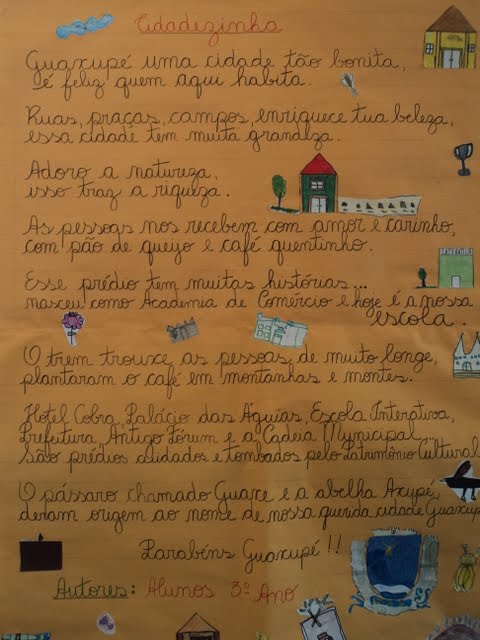 Cidadezinha
Guaxupé uma cidade tão bonita,
é feliz quem aqui habita.
Ruas, praças, campos, enriquece tua beleza,
essa cidade tem muita grandeza.
Adoro a natureza,
isso traz a riqueza.
As pessoas nos recebem com amor e carinho,
com pão de queijo e café quentinho.
Esse prédio tem muitas histórias...
nasceu como Academia de Comércio e hoje é a nossa
escola.
O trem trouxe as pessoas de muito longe,
plantaram o café em montanhas e montes.
Hotel Cobra, Palácio das Águias, Escola Interativa,
Prefeitura, Antigo Fórum e a Cadeia Municipal
São prédios cuidados e tombados pelo Patrimônio Cultural
O pássaro chamado Guaxe e a abelha Axupé,
deram origem ao nome de nossa querida cidade Guaxupé
Parabéns Guaxupé!!
Autores: Alunos 3º Ano